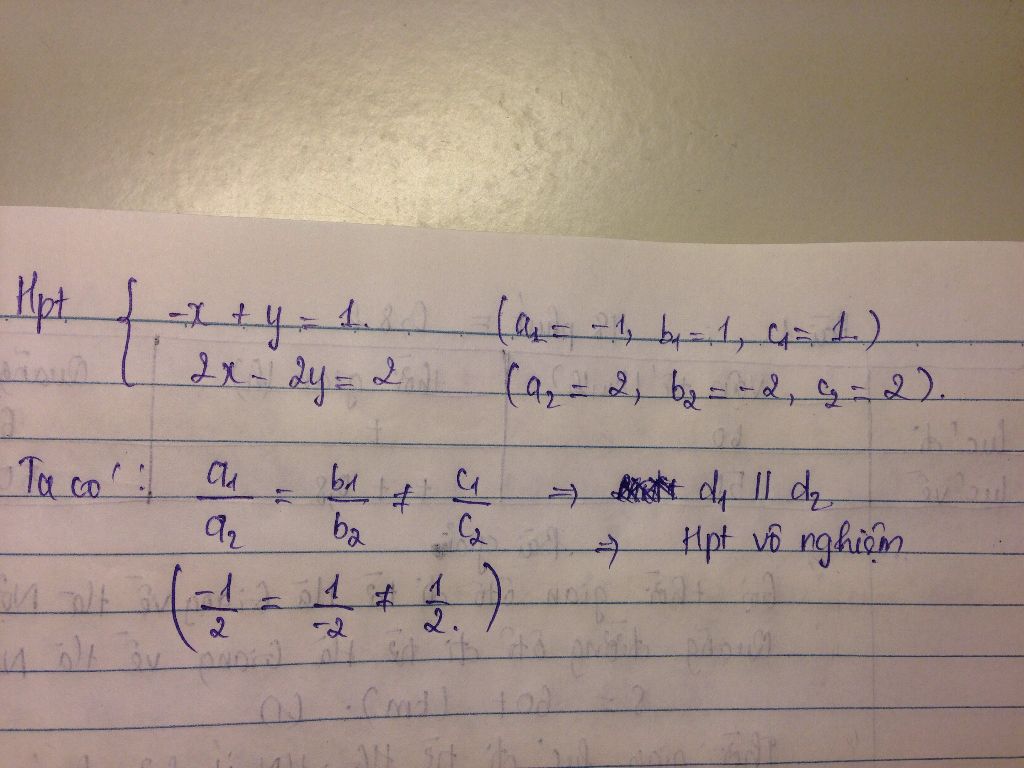 Hpt { -x + y = 1. (a1 = -1, b1 = 1, c1 = 1)
2x - 2y = 2 (a2 = 2, b2 = -2, c2 = 2).
Ta có: a1/a2 = b1/b2 ≠ c1/c2 => d1 // d2
=> Hpt vô nghiệm
(-1/2 = 1/-2 ≠ 1/2.)